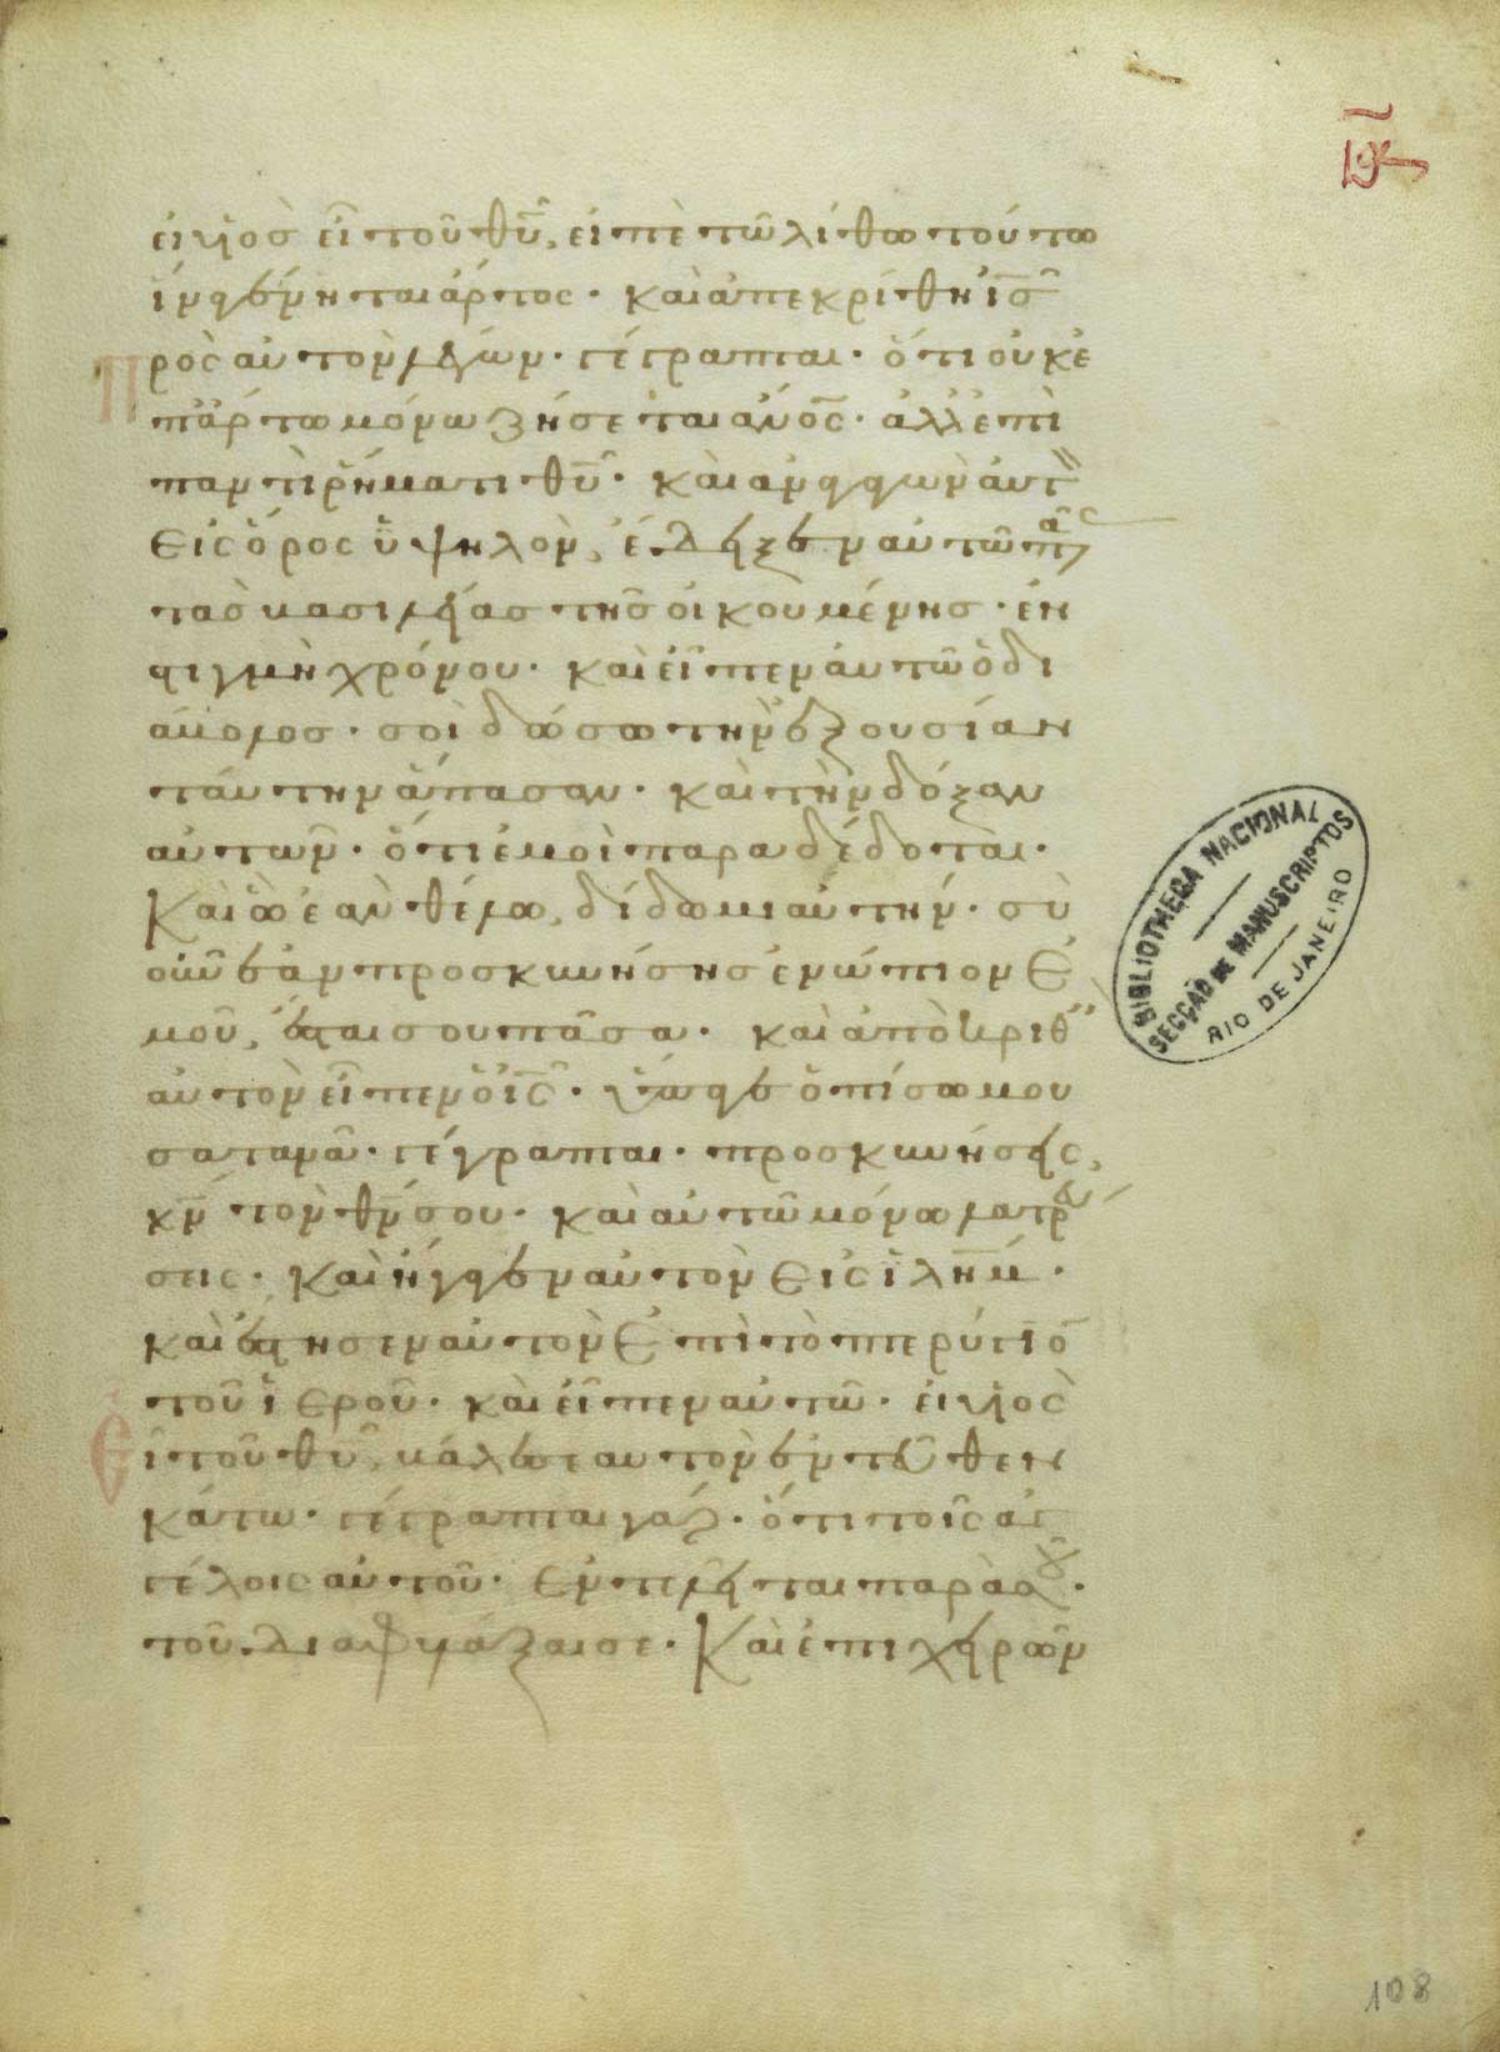 ει υἱὸσ εἶ τοῦ θῦ, εἰπὲ τῶ λίθω τούτω
ἵνα γένηται ἄρτος· καὶ ἀπεκρίθη ἰσ
Προς αὐτὸν λέγων· γέγραπται· ὅτι οὐκ ἐ
π ἄρτω μόνω ζήσεται ἄνος· ἀλλ ἐπὶ
παντὶ ῥήματι θῦ· καὶ ἀναγαγὼν αυτ
εἰς ὄρος ὑψηλὸν, ἔδειξεν αὐτῶ πάς
τὰσ βασιλείασ τῆσ οἰκουμένησ· ἐν
στιγμῆ χρόνου· καὶ εἶπεν αὐτῶ ὁ δι
άβολοσ· σοὶ δώσω τὴν ἐξουσίαν
ταύτην ἅπασαν· καὶ τὴν δόξαν
αὐτῶν· ὅτι ἐμοὶ παραδέδοται·
Καὶ ὧ ἐὰν θέλω, δίδωμι αὐτήν· σὺ
οὖν ἐὰν προσκυνήσησ ἐνώπιον ἐ
μοῦ, ἔσται σου πᾶσα· καὶ ἀποκριθ
αὐτὸν εἶπεν ὁ ἰς· ὕπαγε ὀπίσω μου
σατανᾶ· γέγραπται· προσκυνήσεις,
κν τὸν θν σου· καὶ αὐτῶ μόνω λατρευ
σεις· Καὶ ἤγαγεν αὐτὸν εἰς ἰλημ·
καὶ ἔστησεν αὐτὸν ἐπὶ τὸ πτερύγιο
τοῦ ἱεροῦ· καὶ εἶπεν αὐτῶ· εἰ υἱὸς
Εἶ τοῦ θυ, βάλε σεαυτὸν ἐντεῦθεν
κάτω· γέγραπται γάρ· ὅτι τοῖς ἀγ
γέλοις αὐτοῦ· ἐντελεῖται παρὰ σοῦ·
τοῦ διαφυλάξαι σε· Καὶ ἐπὶ χειρῶν
BIBLIOTHECA NACIONAL
SECÇÃO DE MANUSCRIPTOS
RIO DE JANEIRO
108